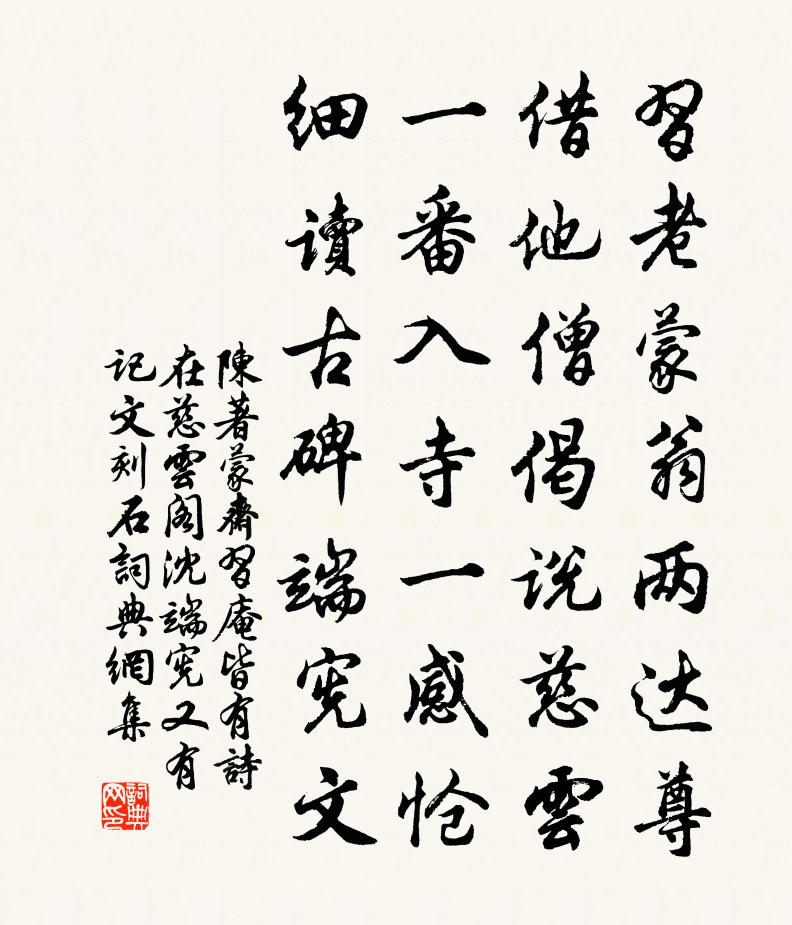 習老蒙翁两达尊
借他僧偈説慈雲
一番入寺一感怆
细讀古碑端宪文
陳著蒙齋習庵皆有詩
在慈雲阁沈端宪又有
记文刻石詞典網集
詞典网印